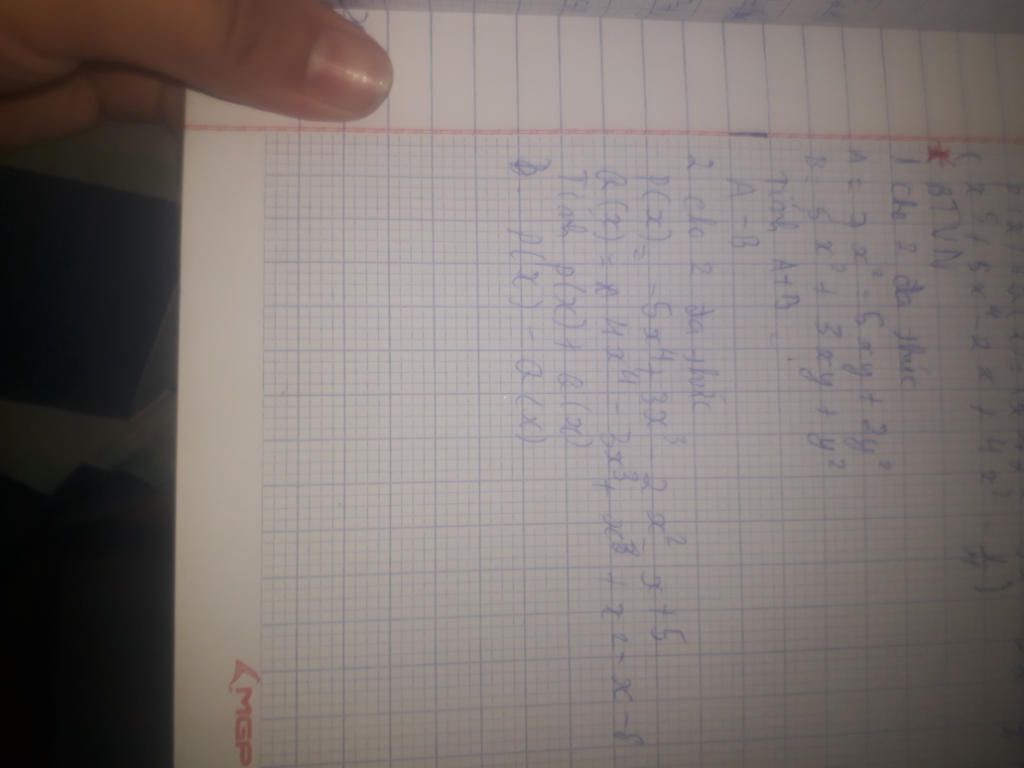 x 5 + 5x⁴ - 2x + 4x² - 1/4 )
* BTVN
1 cho 2 đa thức
A = 7x² - 5xy + 2y²
B: 5x² + 3xy + y²
Tính A+B
A - B
2 cho 2 đa thức
P(x) = -5x⁴ + 3x³ - 2x² - x + 5
Q(x) = 4x⁴ - 3x³ + x² + x² - x - 5
Tính P(x) + Q(x)
P(x) - Q(x)
MGP